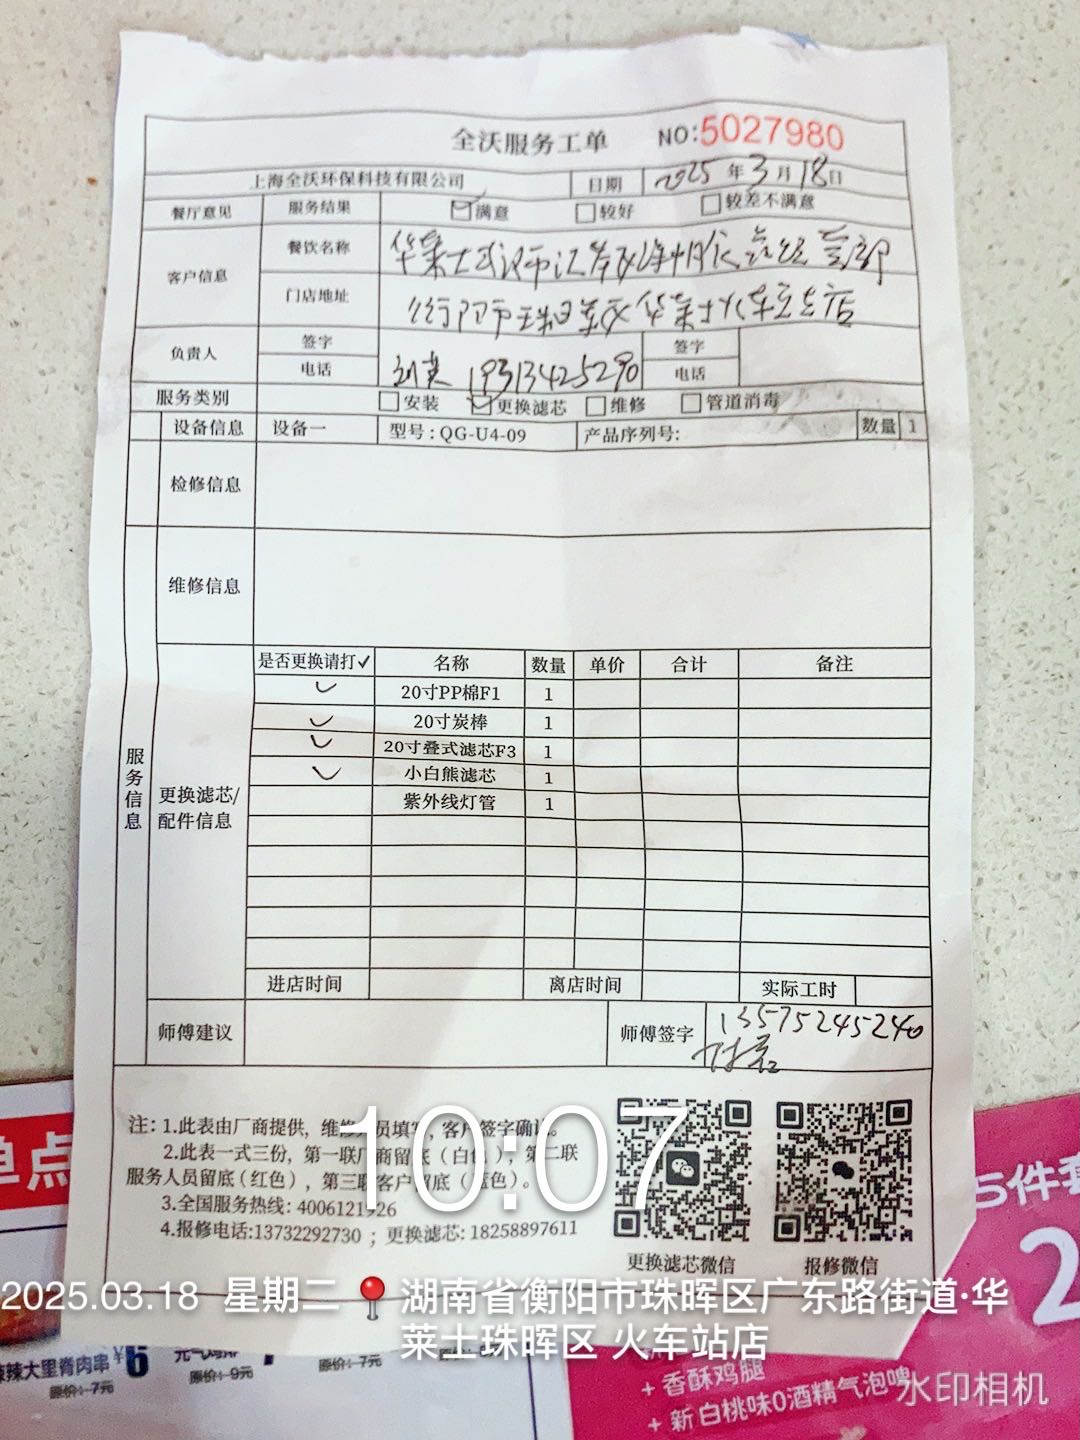 全沃服务工单 NO:5027980
上海全沃环保科技有限公司 日期 2025年3月18日
餐厅意见 服务结果 满意 较好 较差不满意
客户信息 餐饮名称 华莱士武汉市江岸区
门店地址 衡阳市珠晖区华莱士火车站店
负责人 签字 签字
电话 19313425290 电话
服务类别 安装 更换滤芯 维修 管道消毒
设备信息 设备一 型号:QG-U4-09 产品序列号: 数量 1
检修信息
维修信息
服务信息
更换滤芯/
配件信息
是否更换请打✓ 名称 数量 单价 合计 备注
✓ 20寸PP棉F1 1
✓ 20寸炭棒 1
✓ 20寸叠式滤芯F3 1
✓ 小白熊滤芯 1
紫外线灯管 1
进店时间 离店时间 实际工时
师傅建议 师傅签字 13575245240
注:1.此表由厂商提供,维修人员填写,客户签字确认。
2.此表一式三份,第一联厂商留底(白色),第二联
服务人员留底(红色),第三联客户留底(蓝色)。
3.全国服务热线:4006121926
4.报修电话:13732292730;更换滤芯:18258897611
更换滤芯微信 报修微信
10:07
2025.03.18 星期二 湖南省衡阳市珠晖区广东路街道·华
莱士珠晖区 火车站店
水印相机
单点
辣大里脊肉串 ¥6
原价:7元
原价:9元
原价:7元
5件套
2
+香酥鸡腿
+新白桃味0酒精气泡啤